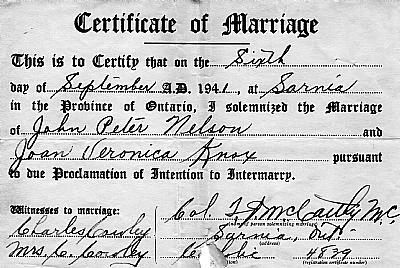 Certificate of Marriage
This is to Certify that on the Sixth
day of September A.D. 1941, at Sarnia
in the Province of Ontario, I solemnized the Marriage
of John Peter Nelson and
Joan Veronica Knox pursuant
to due Proclamation of Intention to Intermarry.
Witnesses to marriage:
Charles Cowley
Mrs. C. Cowley
Col. M.C.
person solemnizing marriage
Sarnia, Ont.
(address)
4829
(registration certificate number)